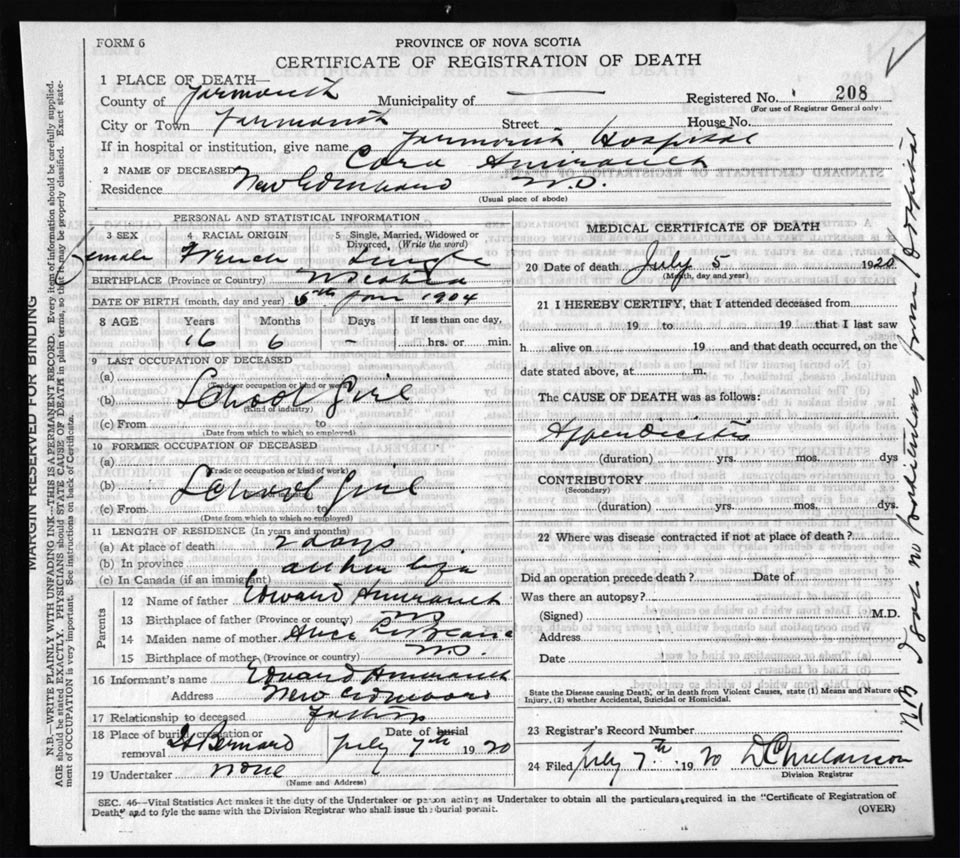 FORM 6
PROVINCE OF NOVA SCOTIA
CERTIFICATE OF REGISTRATION OF DEATH
1 PLACE OF DEATH—
County of Yarmouth Municipality of —
Registered No. 208
(For use of Registrar General only)
City or Town Yarmouth Street House No.
If in hospital or institution, give name Yarmouth Hospital
2 NAME OF DECEASED Cora Amirault
Residence New Edinburg N.S.
(Usual place of abode)
PERSONAL AND STATISTICAL INFORMATION
3 SEX 4 RACIAL ORIGIN 5 Single, Married, Widowed or Divorced, (Write the word)
Female French Single
BIRTHPLACE (Province or Country) N Scotia
DATE OF BIRTH (month, day and year) 5th Jan 1904
8 AGE Years Months Days If less than one day,
16 6 - hrs. or min.
9 LAST OCCUPATION OF DECEASED
(a)
(Trade or occupation or kind of work)
(b) School Girl
(Kind of industry)
(c) From to
(Date from which to which so employed)
10 FORMER OCCUPATION OF DECEASED
(a)
(Trade or occupation or kind of work)
(b) School Girl
(c) From to
(Date from which to which so employed)
11 LENGTH OF RESIDENCE (In years and months)
(a) At place of death 2 days
(b) In province all her life
(c) In Canada (if an immigrant)
Parents
12 Name of father Edward Amirault
13 Birthplace of father (Province or country) NS
14 Maiden name of mother Alice
15 Birthplace of mother (Province or country) N.S.
16 Informant's name Edward Amirault
Address New Edinburg
17 Relationship to deceased Father
18 Place of burial, cremation or removal St Bernard Date of burial July 7th 1920
19 Undertaker none
(Name and Address)
MEDICAL CERTIFICATE OF DEATH
20 Date of death July 5 1920
(Month, day and year)
21 I HEREBY CERTIFY, that I attended deceased from
19 to 19 that I last saw
h alive on 19 and that death occurred, on the
date stated above, at m.
The CAUSE OF DEATH was as follows:
Appendicitis
(duration) yrs. mos. dys
CONTRIBUTORY
(Secondary)
(duration) yrs. mos. dys.
22 Where was disease contracted if not at place of death?
Did an operation precede death? Date of
Was there an autopsy?
(Signed) M.D.
Address
Date
State the Disease causing Death, or in death from Violent Causes, state (1) Means and Nature of Injury, (2) whether Accidental, Suicidal or Homicidal.
23 Registrar's Record Number
24 Filed July 7th 1920 D C Melanson
Division Registrar
SEC. 46—Vital Statistics Act makes it the duty of the Undertaker or person acting as Undertaker to obtain all the particulars required in the "Certificate of Registration of
Death," and to fyle the same with the Division Registrar who shall issue the burial permit.
(OVER)
MARGIN RESERVED FOR BINDING
N.B.—WRITE PLAINLY WITH UNFADING INK—THIS IS A PERMANENT RECORD. Every item of information should be carefully supplied.
AGE should be stated EXACTLY. PHYSICIANS should STATE CAUSE OF DEATH in plain terms, so that it may be properly classified. Exact statement of OCCUPATION is very important. See instructions on back of Certificate.
NB no from Hospital